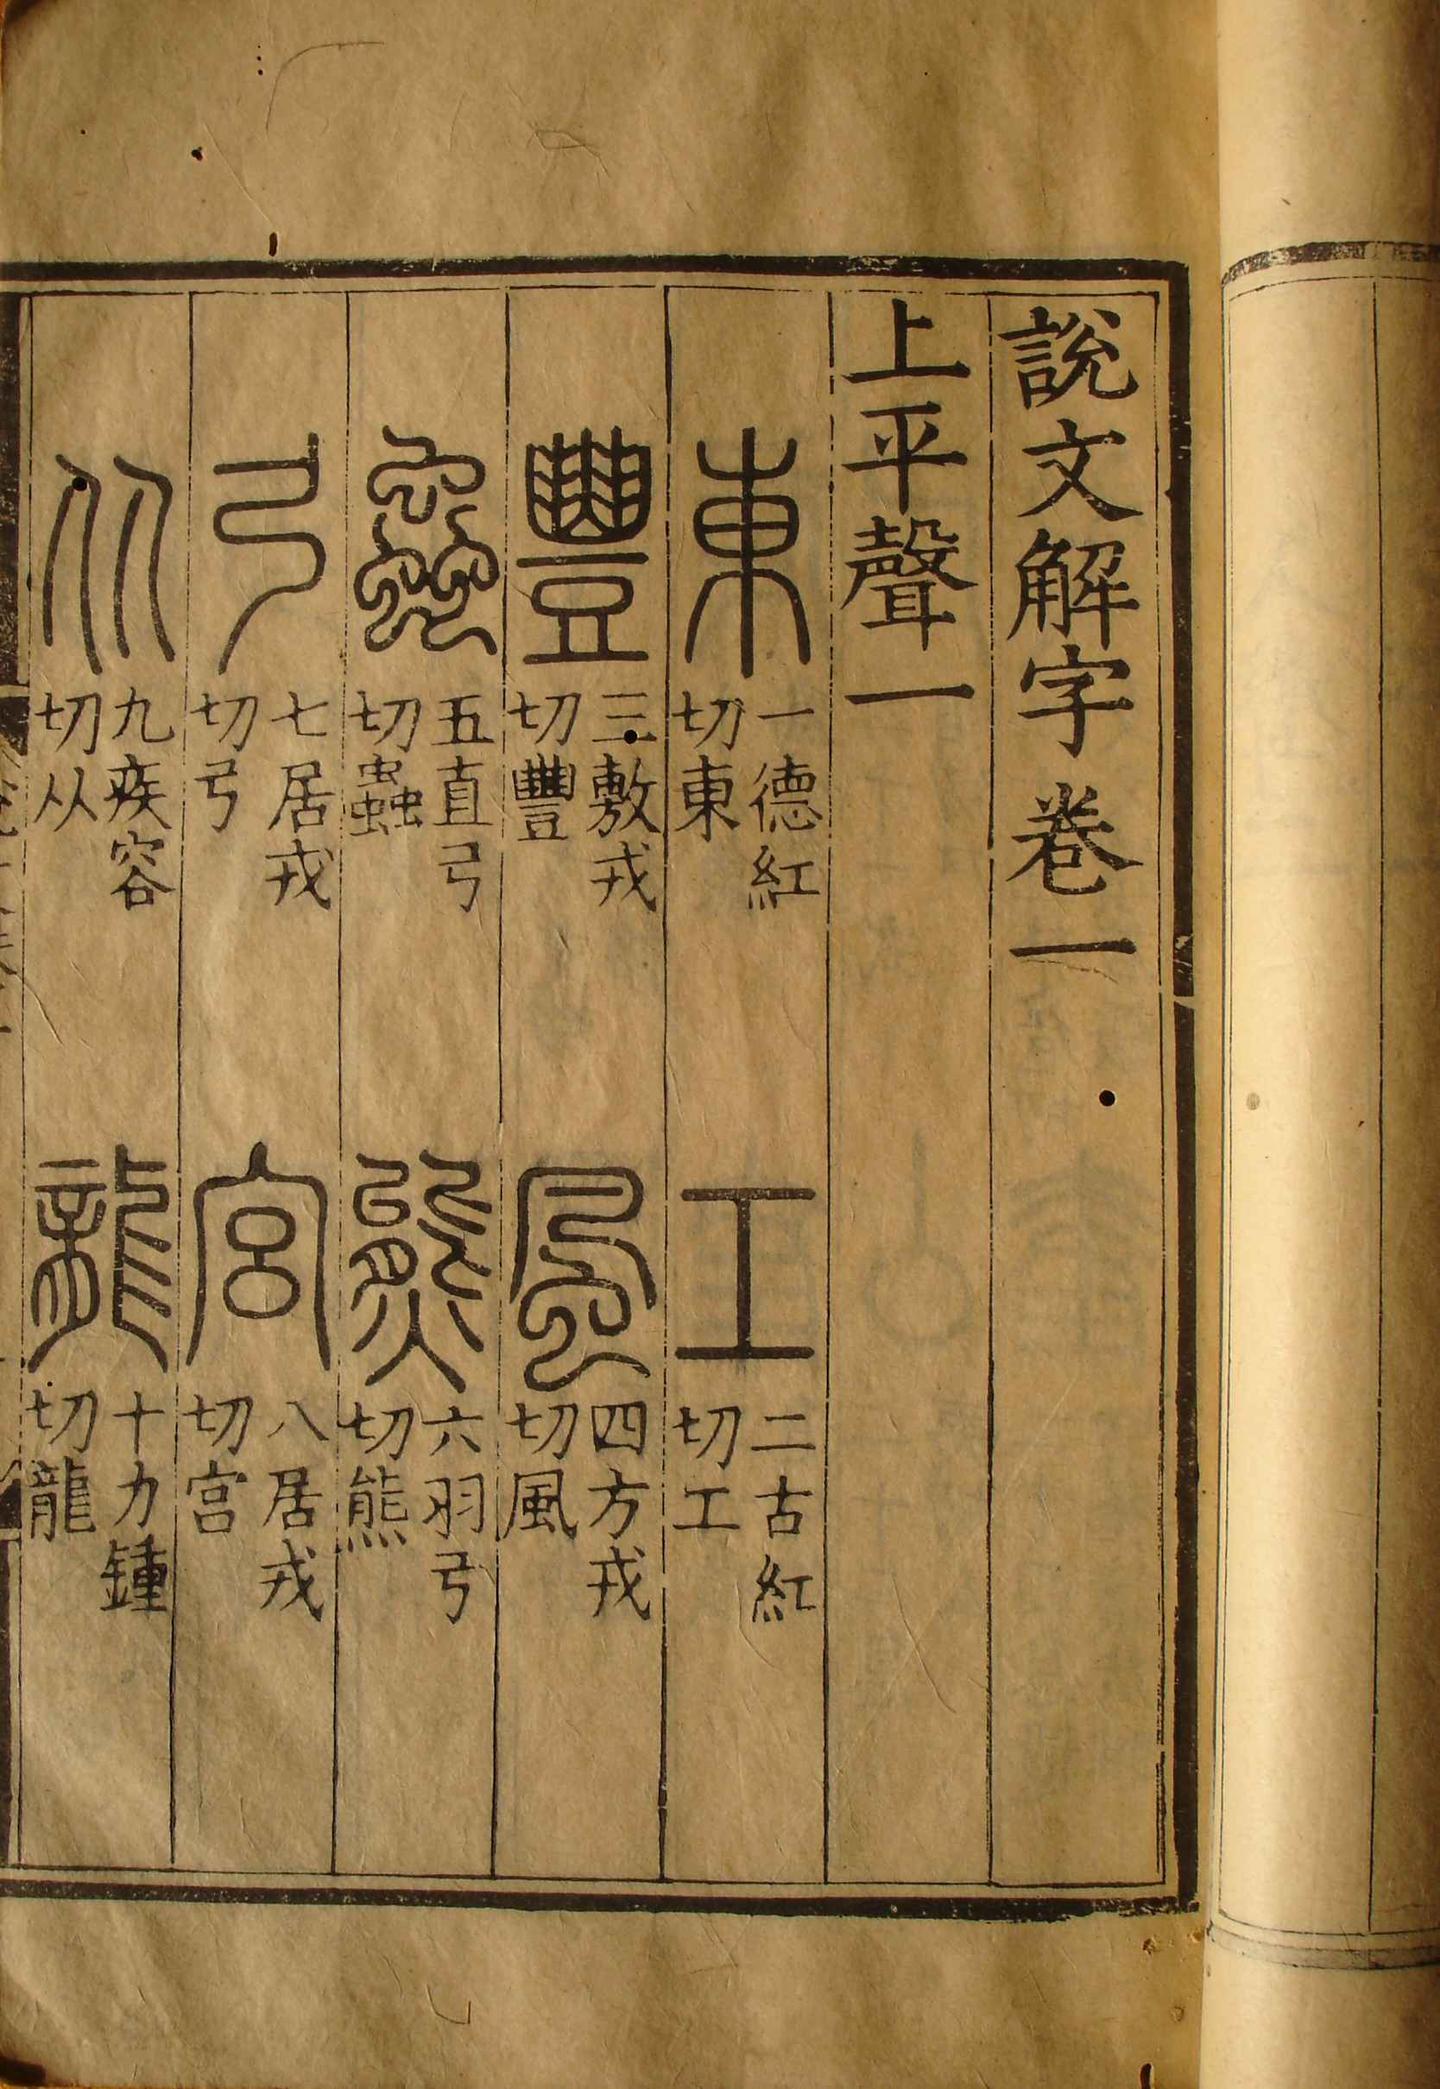 說文解字卷一
上平聲一
東 一德紅切東
工 二古紅切工
豐 三敷戎切豐
風 四方戎切風
蟲 五直弓切蟲
熊 六羽弓切熊
弓 七居戎切弓
宮 八居戎切宮
从 九疾容切从
龍 十力鍾切龍